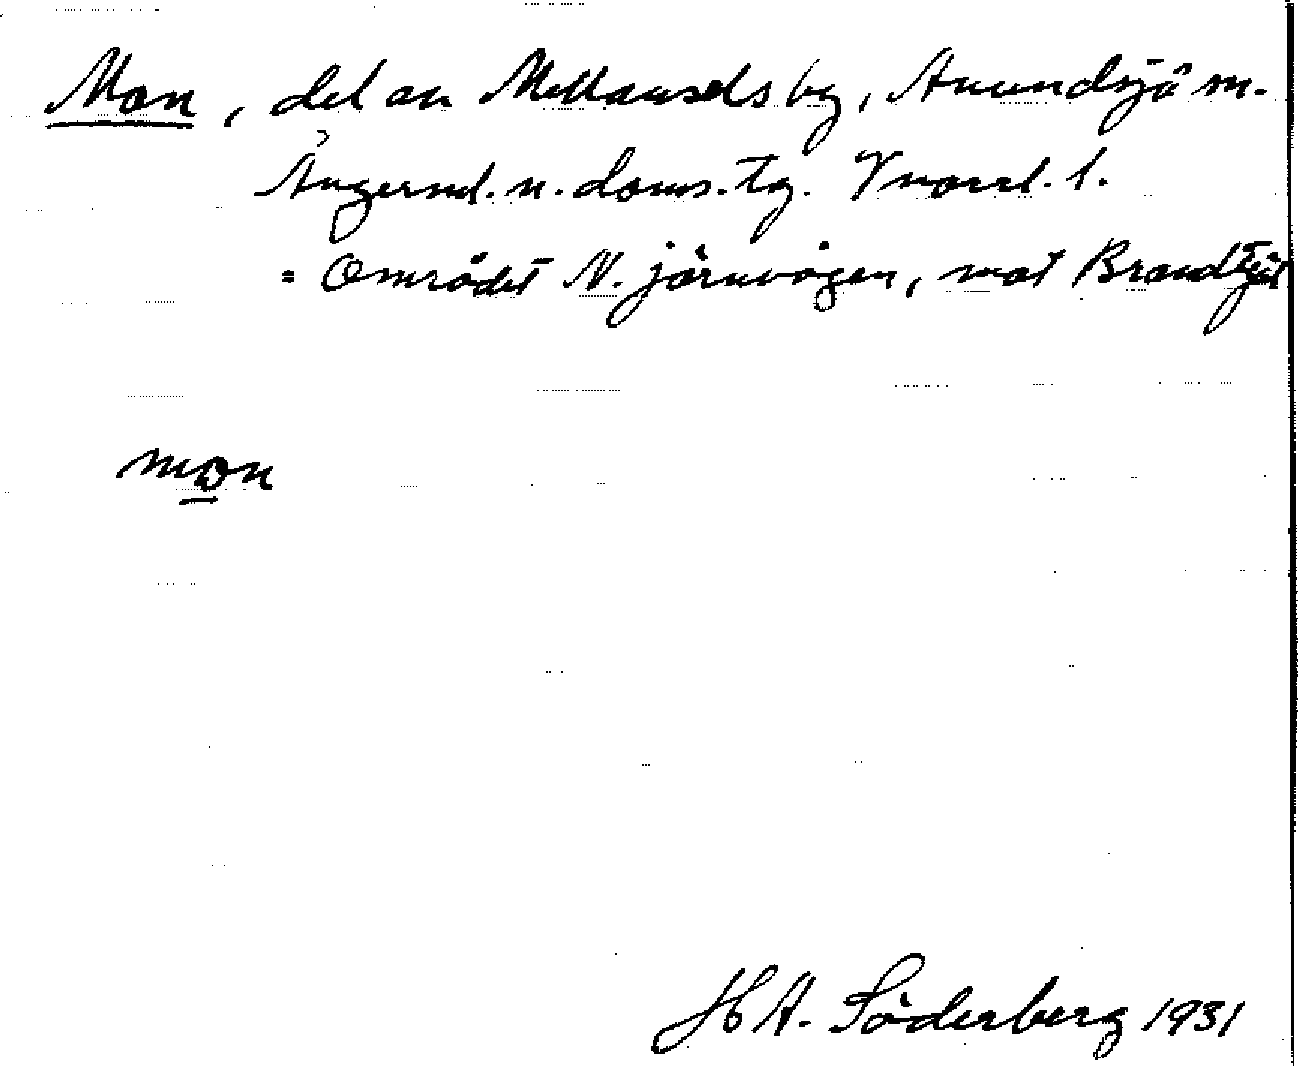 Mon, del av Mellansels by, Anundsjö sn.
Ångerml. n. doms. tg. Vnorrl. l.
= Området N. järnvägen, mot
mon
H A. Söderberg 1931